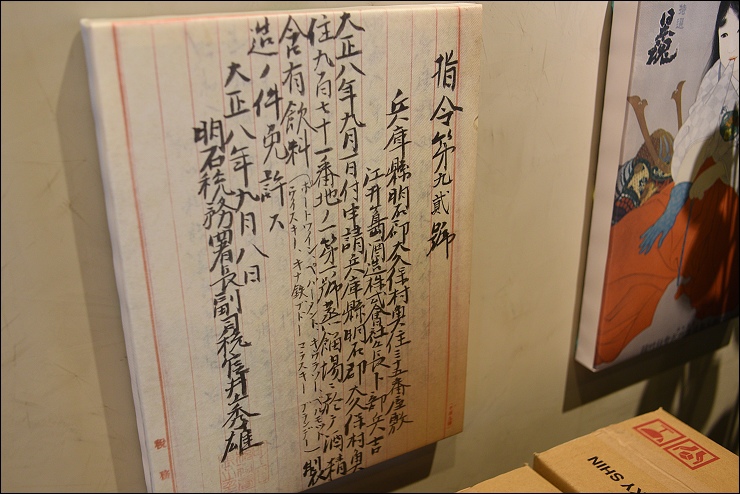 指令第九貳號
兵庫縣明石郡大久保村奥住三十五番屋敷
江井嶋酒造株式會社々長卜部兵吉
大正八年九月一日付申請兵庫縣明石郡大久保村奥
住九百七十一番地ノ一第一號蒸餾場ニ於テ酒精
含有飲料(ポートワイン、ペパーミント、キウラソー、ベルモット
ウイスキー、キナ鉄ブドー
ブランデー)製
造ノ件免許ス
大正八年九月八日
明石税務署長副司税官井上秀雄
税務
特選
RY SHIN